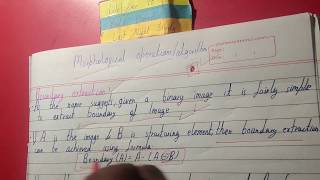 Morphological operation/algorithm
Boundary extraction:-
As the name suggests, given a binary image it is fairly simple
to extract boundary of Image.
A is the image & B is structuring element, then boundary extraction
can be achieved using formula
Boundary (A) = A - (A⊖B)